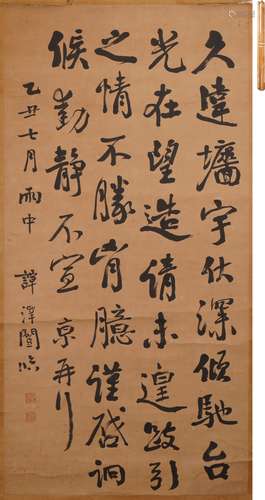 久違墻宇伏深傾馳台
光在望造請未遑跂引
之情不勝胷臆謹啟詗
候動靜不宣京再拜
乙丑七月雨中 譚澤闓臨